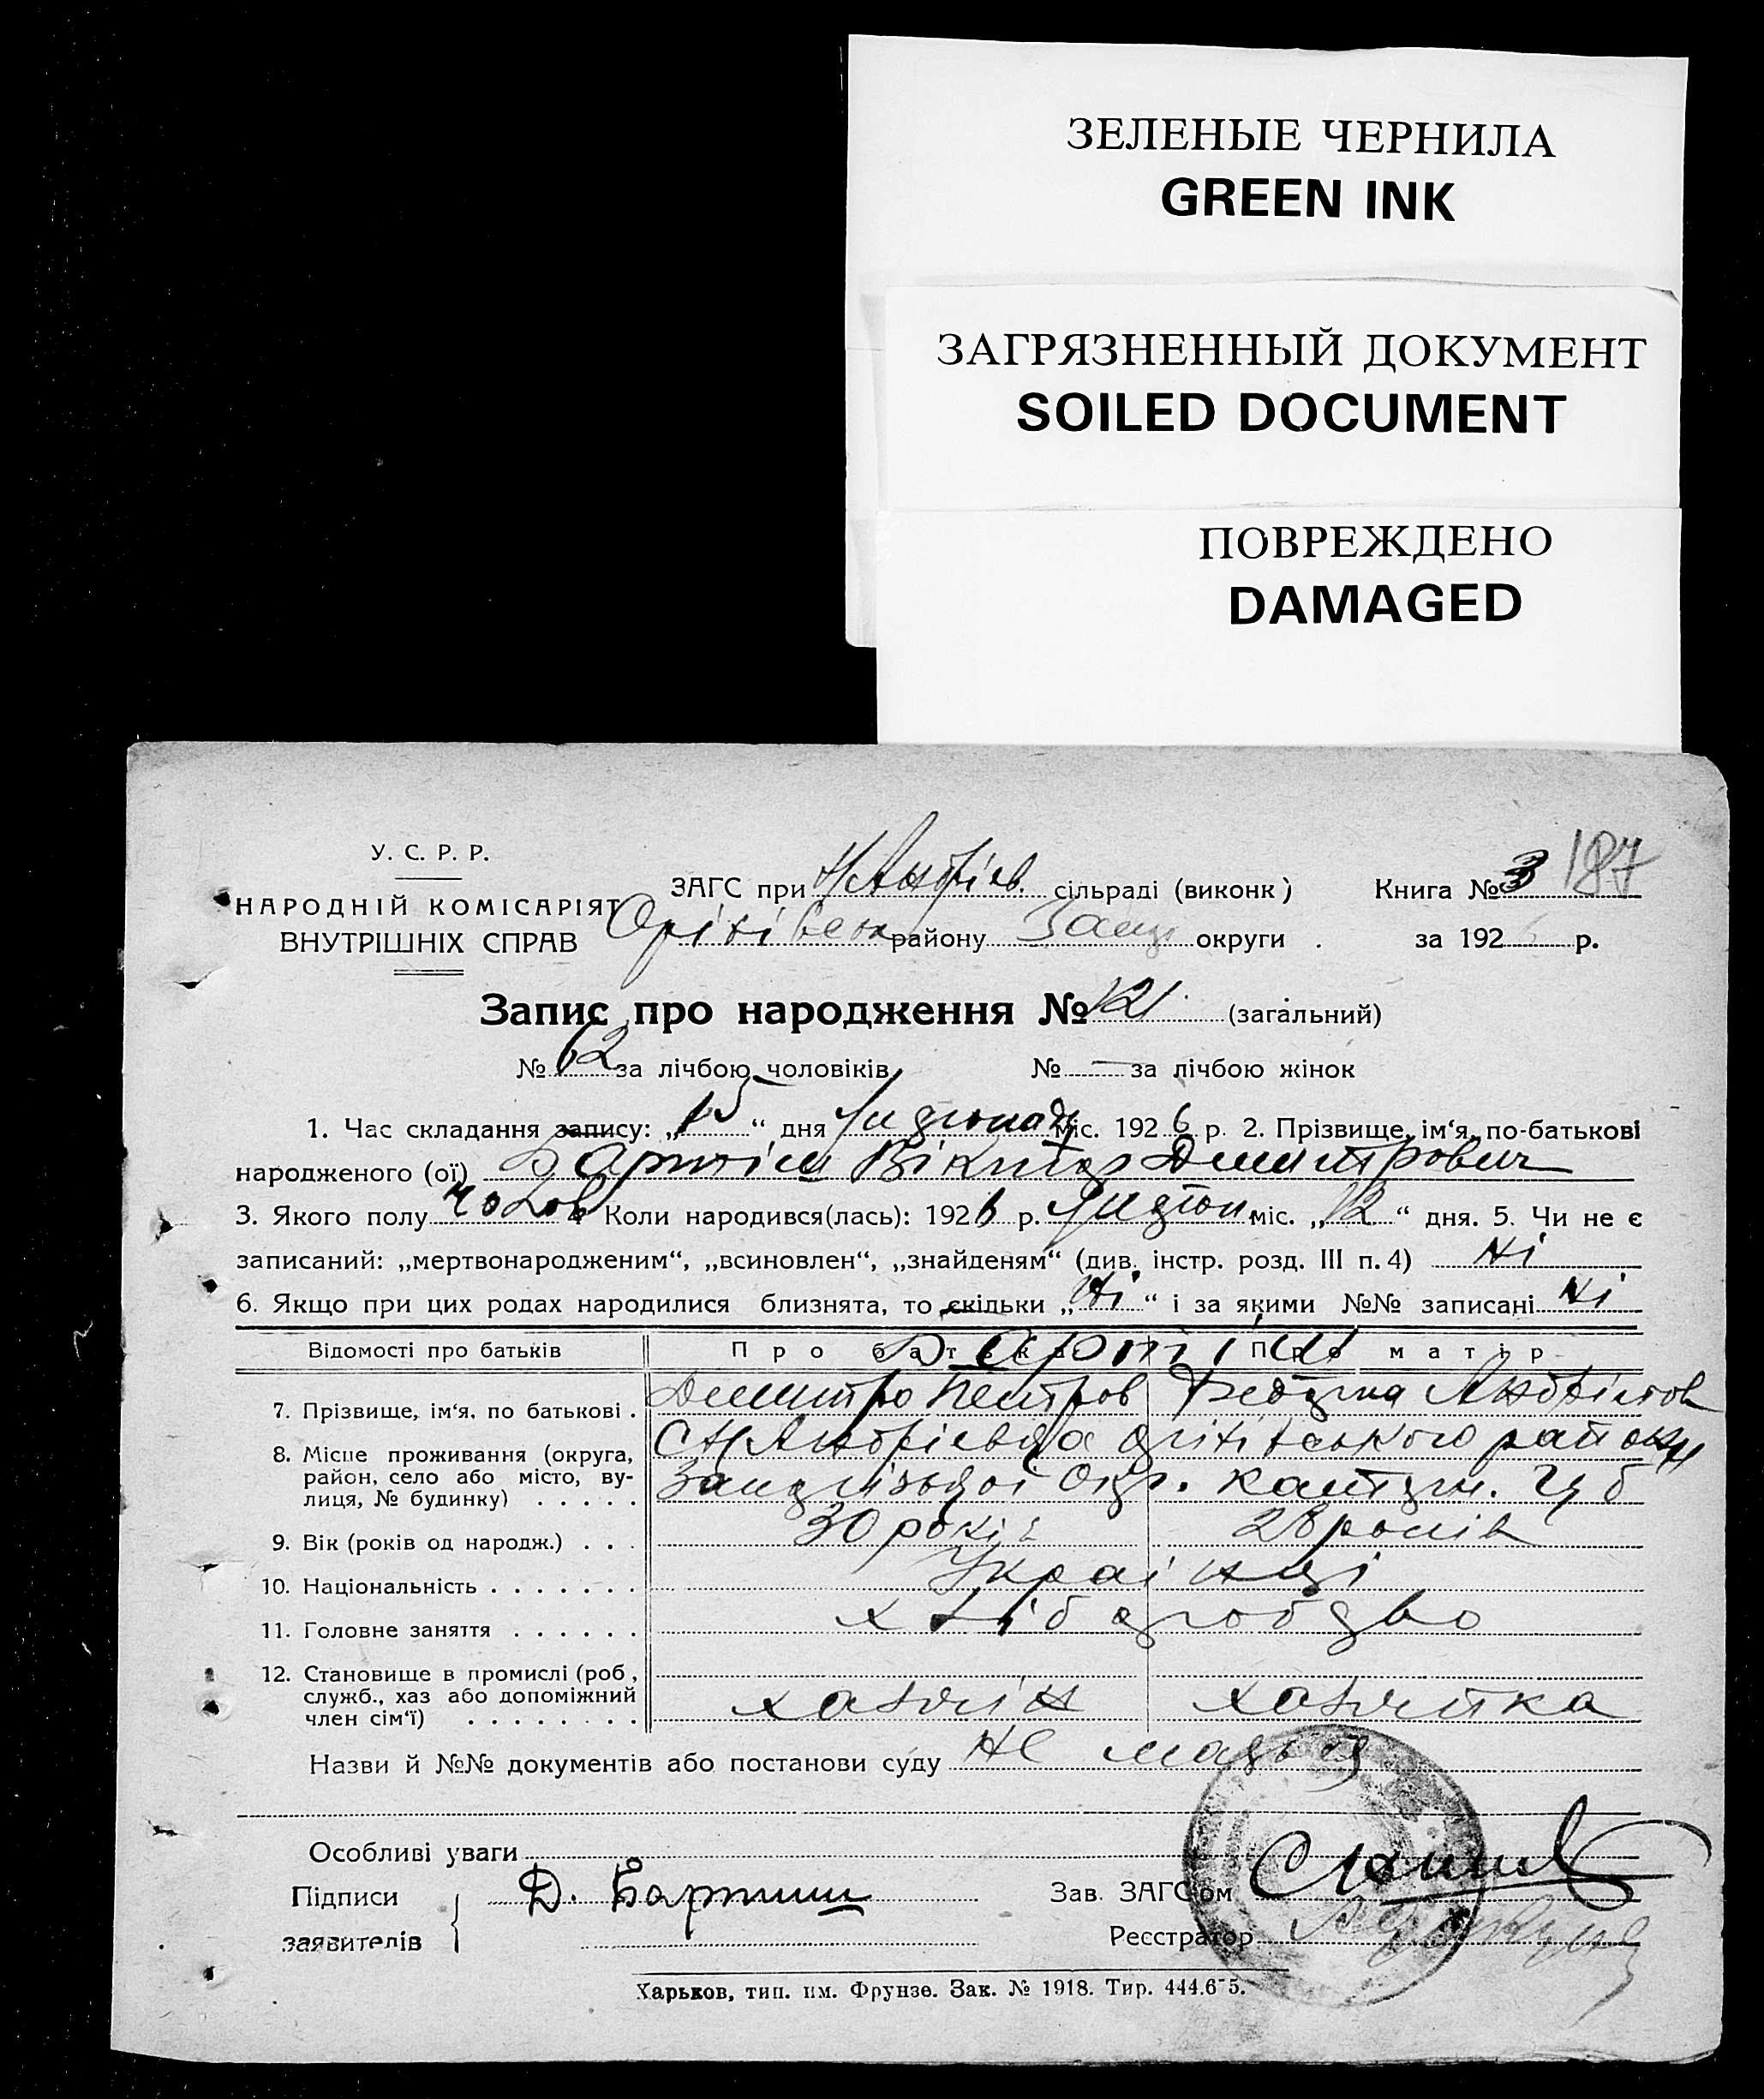 ЗЕЛЕНЫЕ ЧЕРНИЛА
GREEN INK
ЗАГРЯЗНЕННЫЙ ДОКУМЕНТ
SOILED DOCUMENT
ПОВРЕЖДЕНО
DAMAGED
У. С. Р. Р.
НАРОДНІЙ КОМІСАРІЯТ
ВНУТРІШНІХ СПРАВ
187
ЗАГС при Н Андрієв. сільраді (виконк) Книга № 3
району Запор округи за 192 р.
Запис про народження № 121 (загальний)
№ 62 за лічбою чоловіків № — за лічбою жінок
1. Час складання запису: „15“ дня Листопад міс. 1926 р. 2. Прізвище, ім‘я, по-батькові
народженого (ої) Бартіш Віктор Дмитрович
3. Якого полу чолов 4 Коли народився(лась): 1926 р. Листоп міс. „12“ дня. 5. Чи не є
записаний: „мертвонародженим“, „всиновлен“, „знайденям“ (див. інстр. розд. III п. 4) Ні
6. Якщо при цих родах народилися близнята, то скільки „Ні“ і за якими №№ записані Ні
Відомості про батьків Про батька Про матір
Бартіш
7. Прізвище, ім‘я, по батькові . Дмитро Петров
8. Місце проживання (округа, район, село або місто, вулиця, № будинку) . . . . . С Н Андрієвка району
9. Вік (років од народж.) . . . 30 років 28 років
10. Національність . . . . . . . Українці
11. Головне заняття . . . . . . хліборобство
12. Становище в промислі (роб, служб., хаз або допоміжний член сім‘ї) . . . . . . . . хазяїн хазяйка
Назви й №№ документів або постанови суду Не мається
Особливі уваги
Підписи
заявителів
Д. Бартиш
Зав. ЗАГС‘ом
Реєстратор
Харьков, тип. им. Фрунзе. Зак. № 1918. Тир. 444.675.